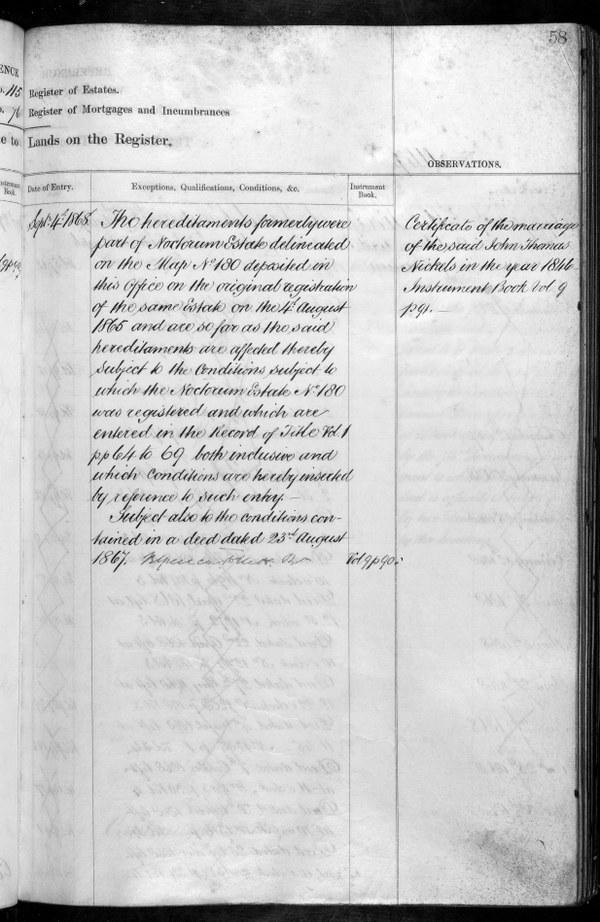 58
ENCE
115
76
e to
Instrument
Book.
Register of Estates.
Register of Mortgages and Incumbrances
Lands on the Register.
OBSERVATIONS.
Date of Entry.
Exceptions, Qualifications, Conditions, &c.
Instrument
Book.
Sept. 4th 1868
The hereditaments formerly were
part of Noctorum Estate delineated
on the Map No 180 deposited in
this Office on the original registration
of the same Estate on the 4th August
1865 and are so far as the said
hereditaments are affected thereby
subject to the Conditions subject to
which the Noctorum Estate No 180
was registered and which are
entered in the Record of Title Vol. 1
pp 64 to 69 both inclusive and
which Conditions are hereby inserted
by reference to such entry. —
Subject also to the conditions con-
tained in a deed dated 23rd August
1867.
Vol 9 p 90.
Certificate of the marriage
of the said John Thomas
Nickels in the year 1846
Instrument Book Vol 9
p 91. —